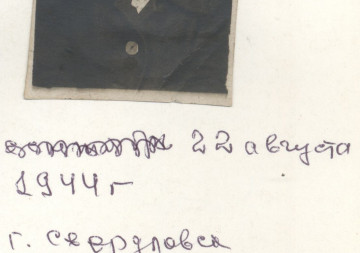 22 августа
1944 г
г. Свердловск